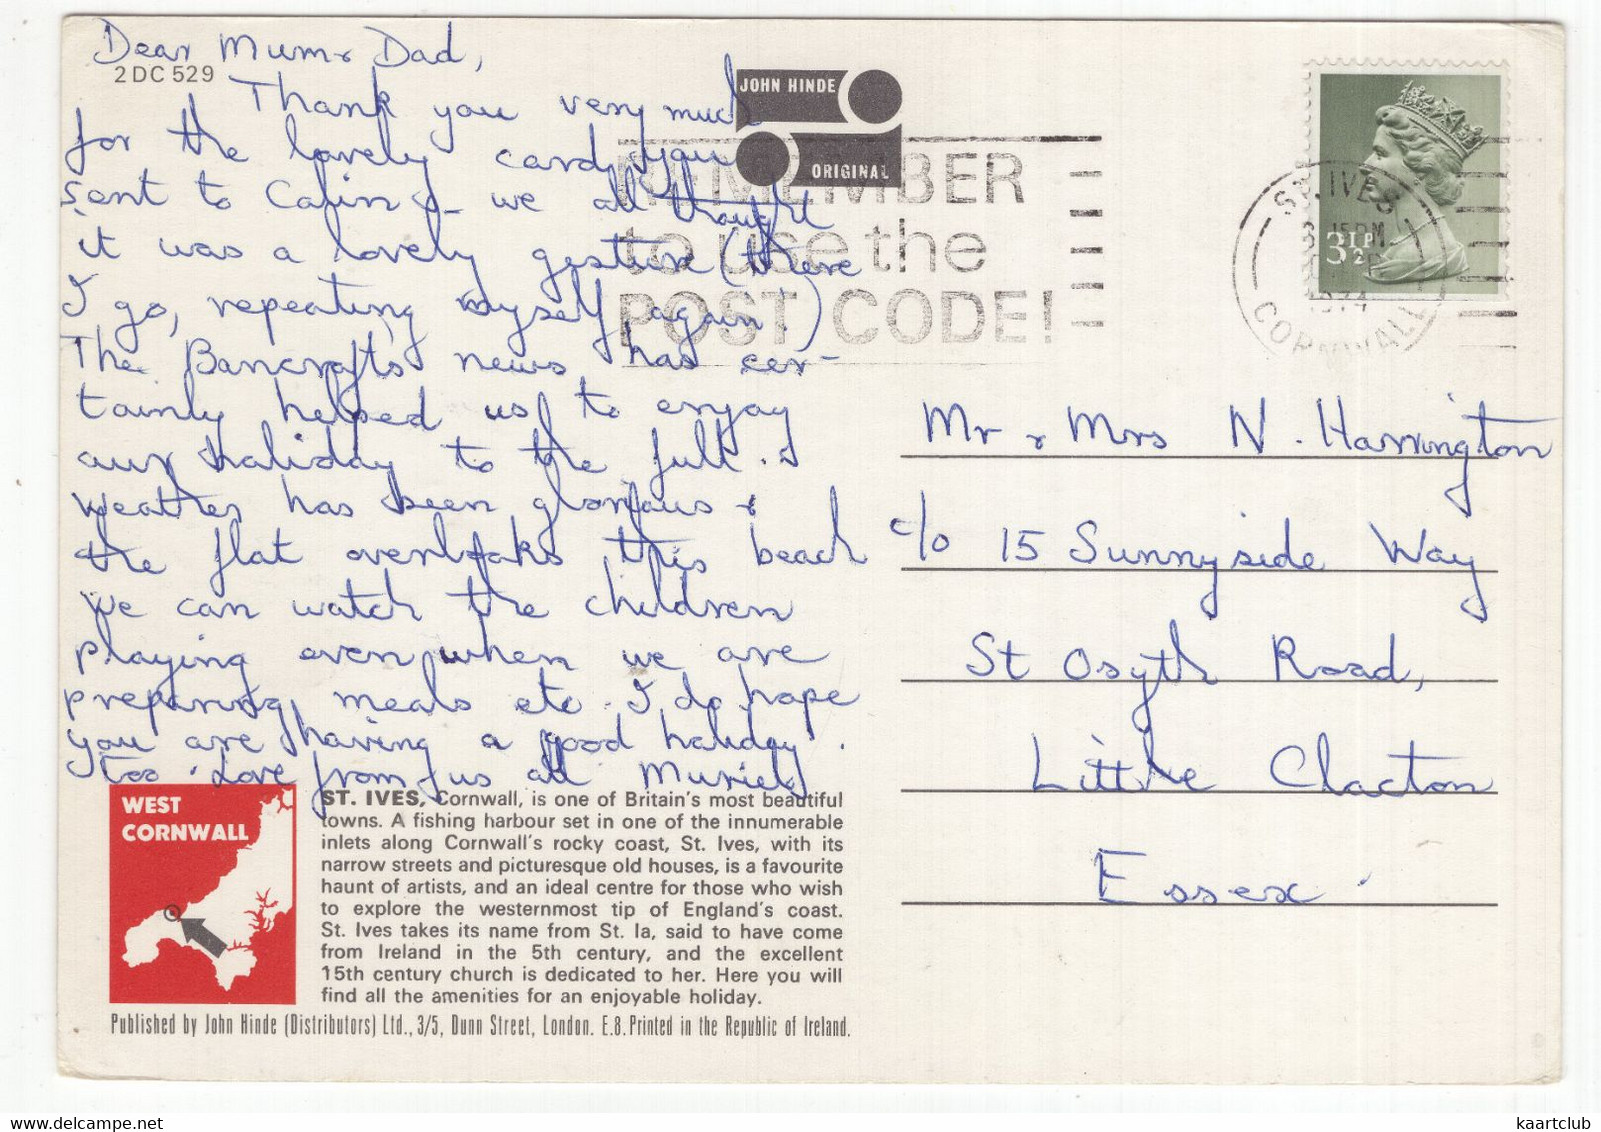 Dear Mum & Dad,
2DC 529
Thank you very much
for the lovely card you
sent to Colin & we all thought
it was a lovely gesture (there
I go, repeating myself again!)
The Bancrofts news has cer-
tainly helped us to enjoy
our holiday to the full.
Weather has been glorious &
the flat overlooks this beach
We can watch the children
playing even when we are
preparing meals etc. I do hope
you are having a good holiday
too. Love from us all Muriel
JOHN HINDE
ORIGINAL
REMEMBER
to use the
POST CODE!
ST. IVES
3 15PM
1974
CORNWALL
3½P
Mr & Mrs N. Harrington
c/o 15 Sunnyside Way
St Osyth Road,
Little Clacton
Essex.
WEST
CORNWALL
ST. IVES, Cornwall, is one of Britain's most beautiful
towns. A fishing harbour set in one of the innumerable
inlets along Cornwall's rocky coast, St. Ives, with its
narrow streets and picturesque old houses, is a favourite
haunt of artists, and an ideal centre for those who wish
to explore the westernmost tip of England's coast.
St. Ives takes its name from St. Ia, said to have come
from Ireland in the 5th century, and the excellent
15th century church is dedicated to her. Here you will
find all the amenities for an enjoyable holiday.
Published by John Hinde (Distributors) Ltd., 3/5, Dunn Street, London. E.8. Printed in the Republic of Ireland.
kaartclub